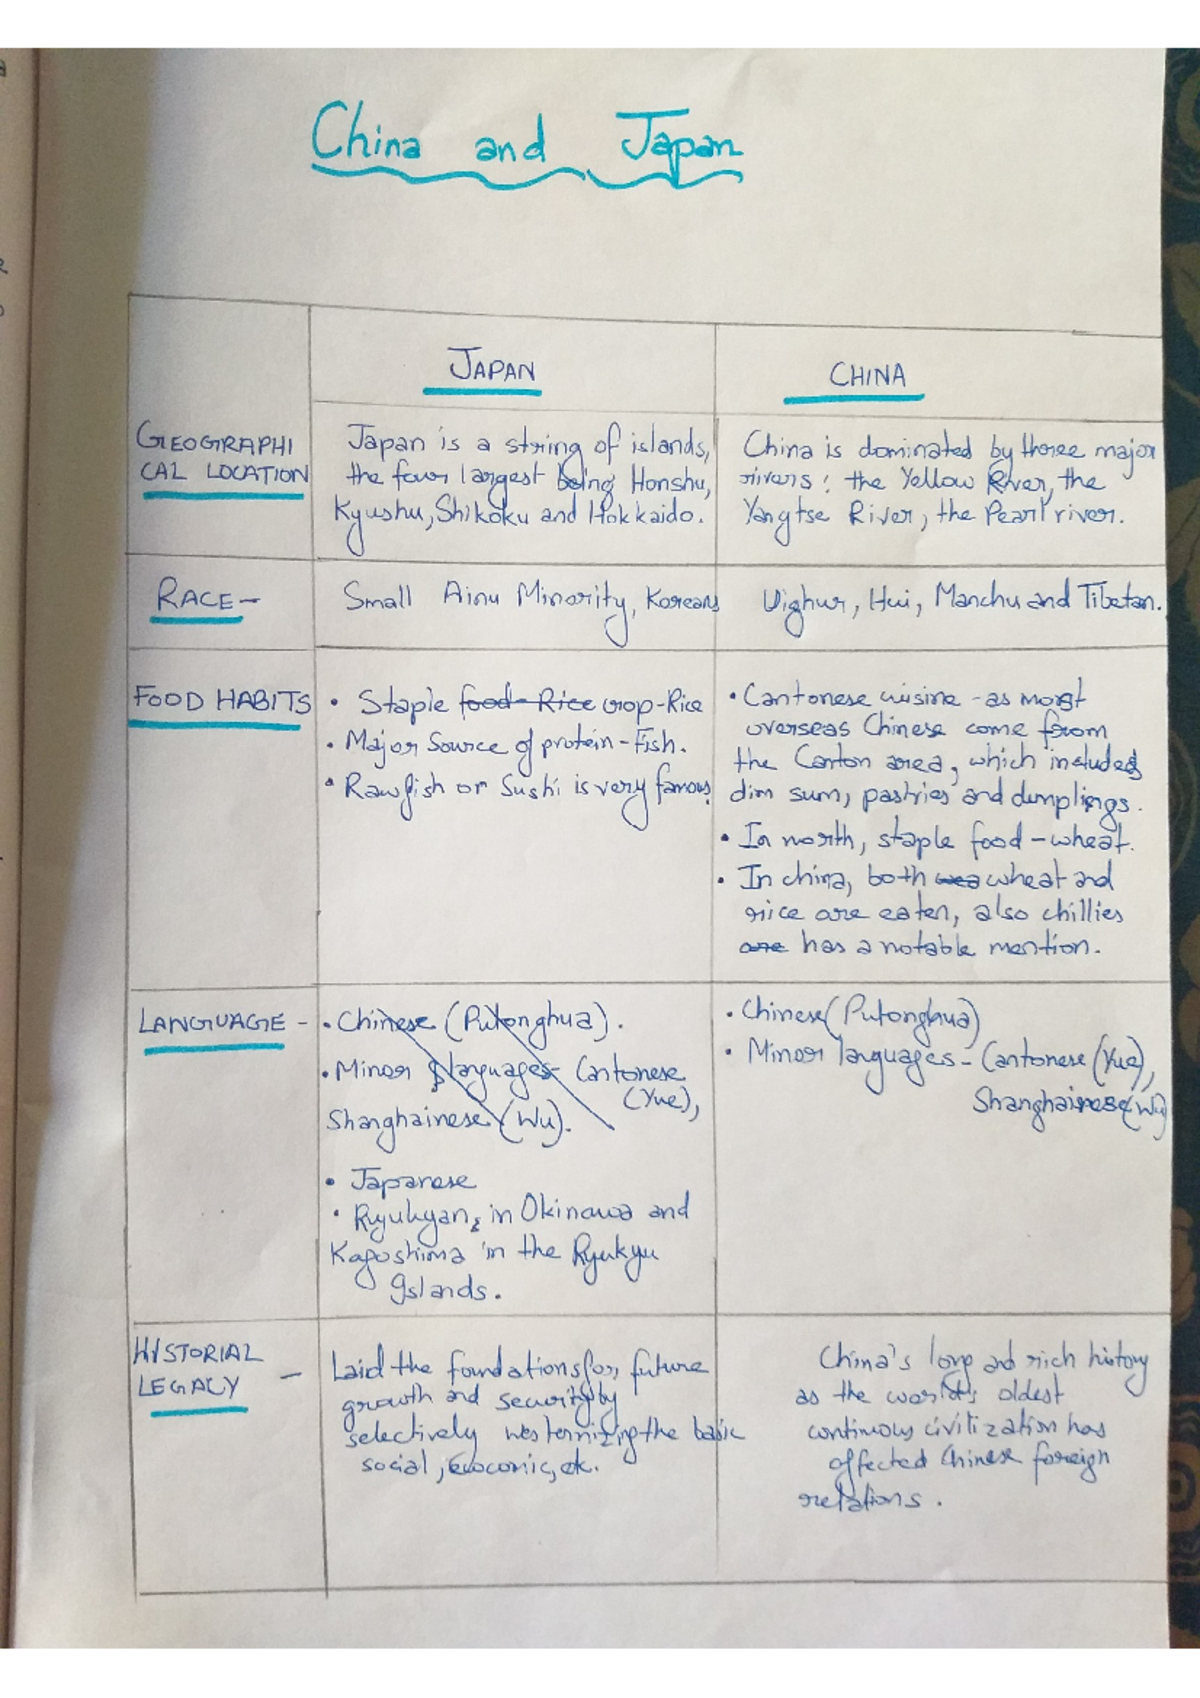 China and Japan
JAPAN
CHINA
GEOGRAPHI
CAL LOCATION
Japan is a string of islands,
the four largest being Honshu,
Kyushu, Shikoku and Hokkaido.
China is dominated by three major
rivers: the Yellow River, the
Yangtse River, the Pearl river.
RACE-
Small Ainu Minority, Koreans
Uighur, Hui, Manchu and Tibetan.
FOOD HABITS
• Staple food-Rice crop-Rice
• Major Source of protein-Fish.
• Raw fish or Sushi is very famous.
• Cantonese cuisine -as most
overseas Chinese come from
the Canton area, which includes
dim sum, pastries and dumplings.
• In north, staple food - wheat.
• In china, both wea wheat and
rice are eaten, also chillies
are has a notable mention.
LANGUAGE -
• Chinese (Putonghua).
• Minor languages- Cantonese
(Yue),
Shanghainese (Wu).
• Japanese
• Ryukyan, in Okinawa and
Kagoshima in the Ryukyu
Islands.
• Chinese (Putonghua)
• Minor languages - Cantonese (Yue),
Shanghainese (Wu)
HISTORIAL
LEGACY -
Laid the foundations for future
growth and security by
selectively westernizing the basic
social, etc.
China's long and rich history
as the world's oldest
continuous civilization has
affected Chinese foreign
relations.